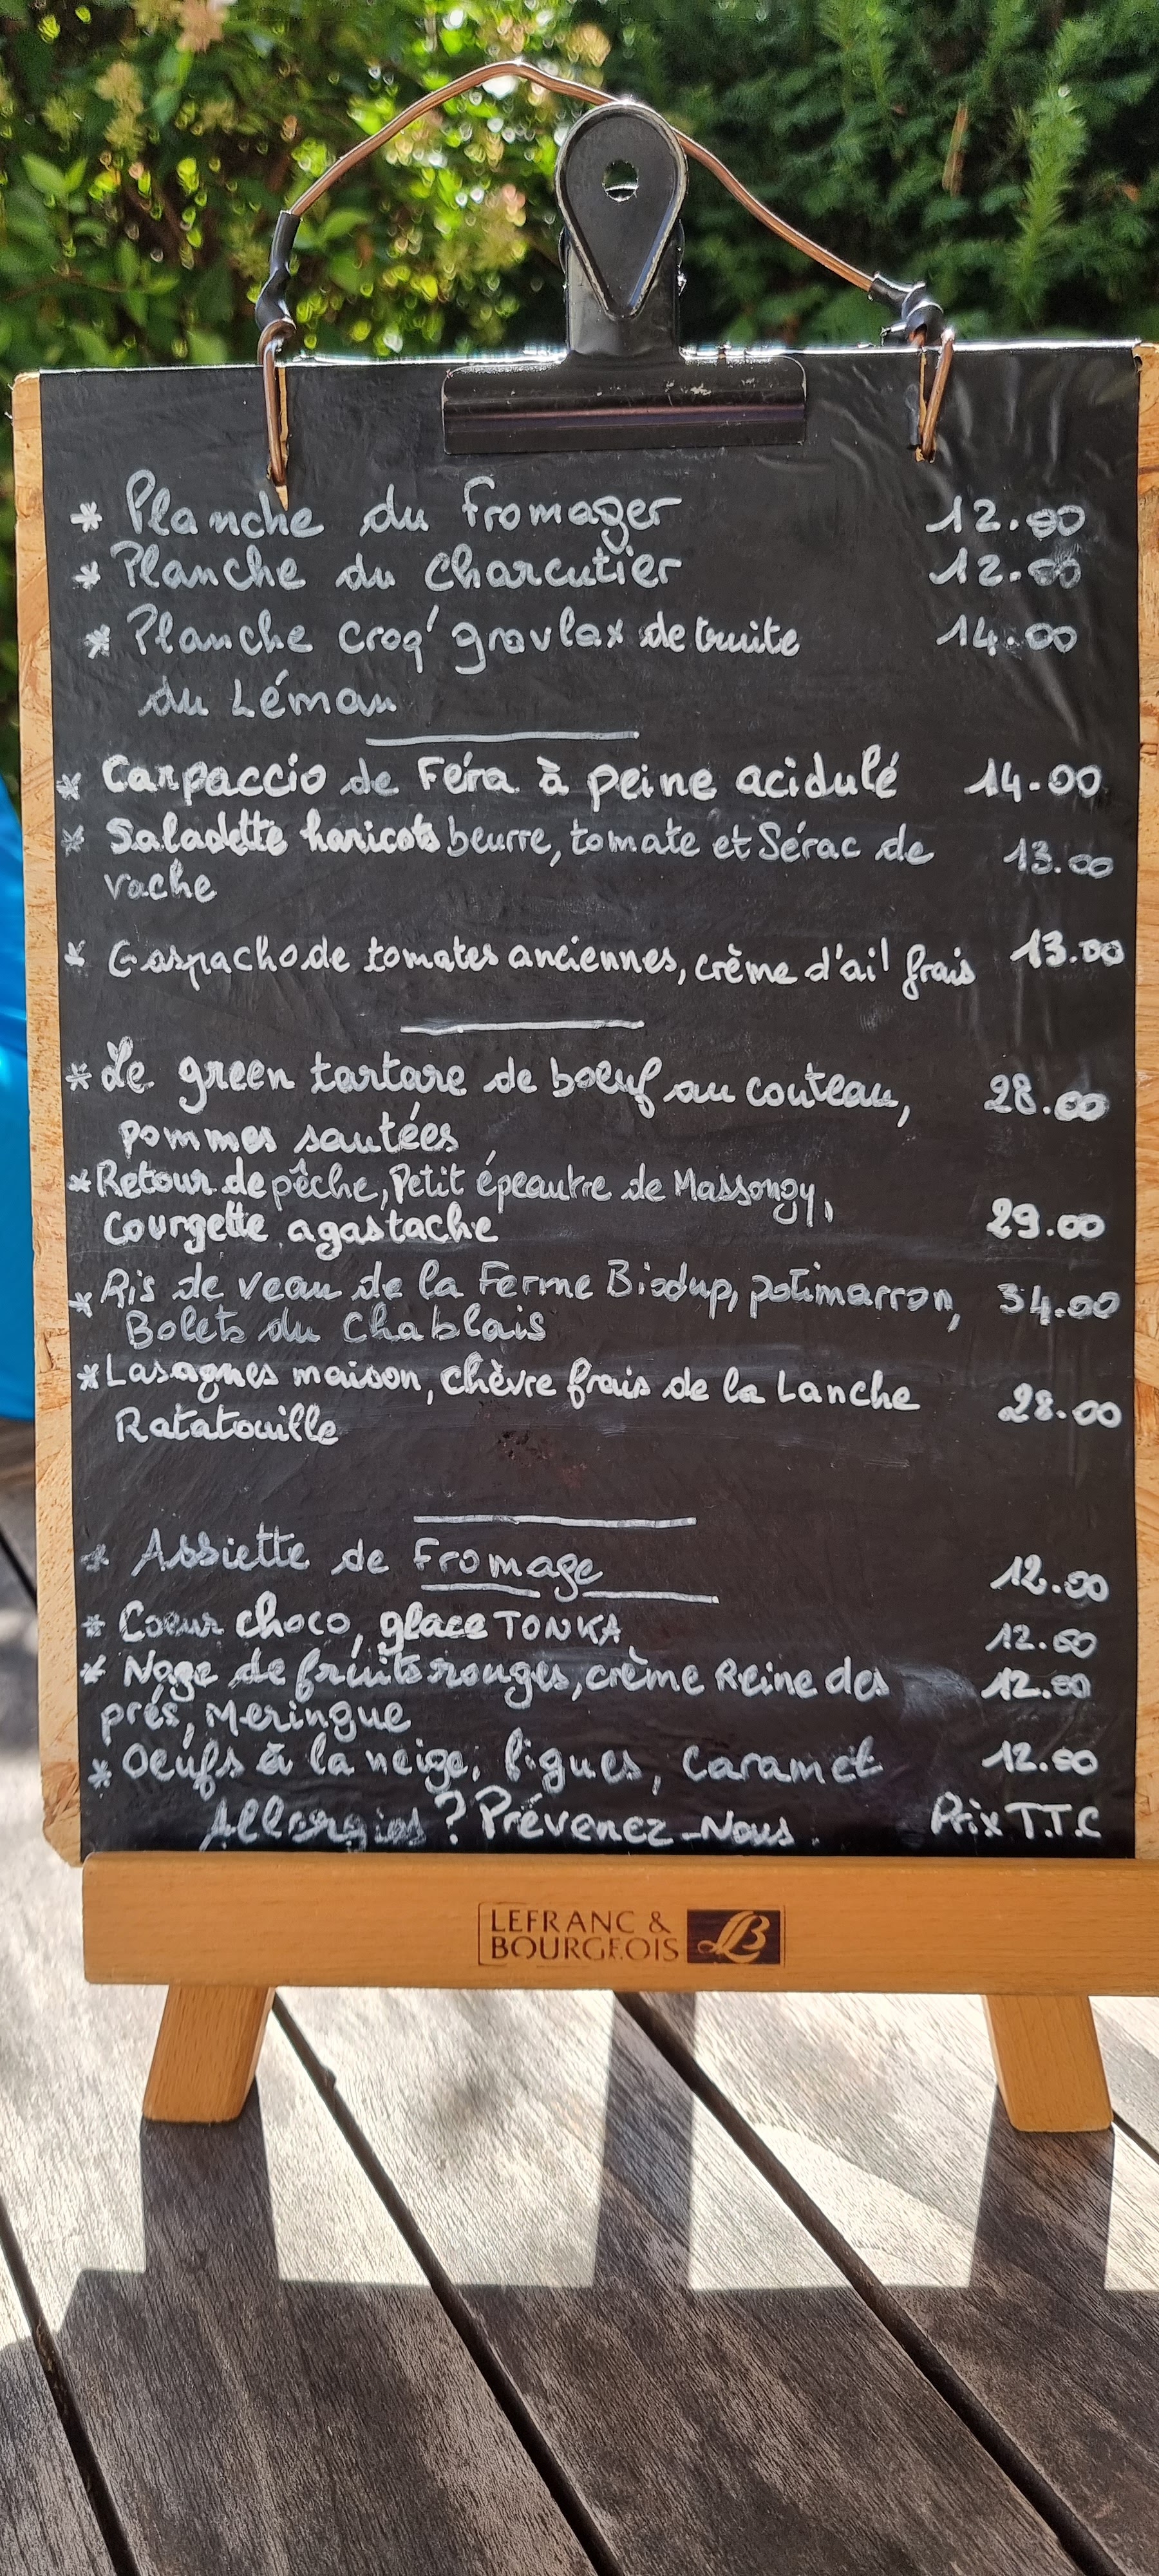 * Planche du Fromager 12.00
* Planche du Charcutier 12.00
* Planche Croq' gravlax de truite 14.00
du Léman
* Carpaccio de Féra à peine acidulé 14.00
* Saladette haricots beurre, tomate et Sérac de 13.00
vache
* Gaspacho de tomates anciennes, crème d'ail frais 13.00
* Le green tartare de boeuf au couteau, 28.00
pommes sautées
* Retour de pêche, Petit épeautre de Massongy,
Courgette agastache 29.00
* Ris de veau de la Ferme potimarron, 34.00
Bolets du Chablais
* Lasagnes maison, chèvre frais de la Lanche 28.00
Ratatouille
* Assiette de Fromage 12.00
* Coeur choco, glace TONKA 12.00
* Nage de fruits rouges, crème Reine des 12.00
prés, Meringue
* Oeufs à la neige, figues, Caramel 12.00
Allergies ? Prévenez-Nous. Prix T.T.C
LEFRANC & LB
BOURGEOIS